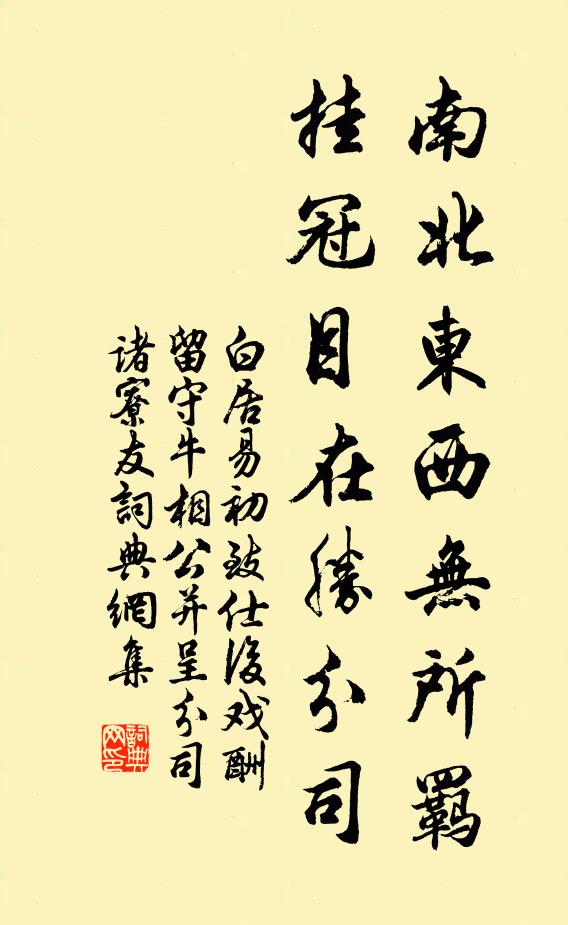 南北東西無所羈
挂冠目在勝分司
白居易初致仕後戏酬
留守牛相公并呈分司
诸寮友詞典網集
詞典
网印